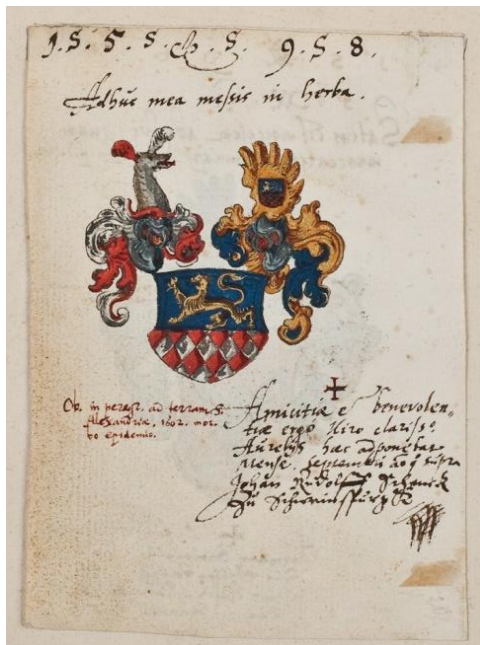 1 . 5 . S . S . 9 . S . 8 .
Adhuc mea messis in herba .
Ob. in peregr. ad terram S.
Alexandriæ, 1602. mor-
bo epidemio.
Amicitiæ et benevolen-
tiæ ergo Viro clariss:
Aurelijs hæc adponebat
Mense Septembri
Johan Rudolff Schenck
Zu